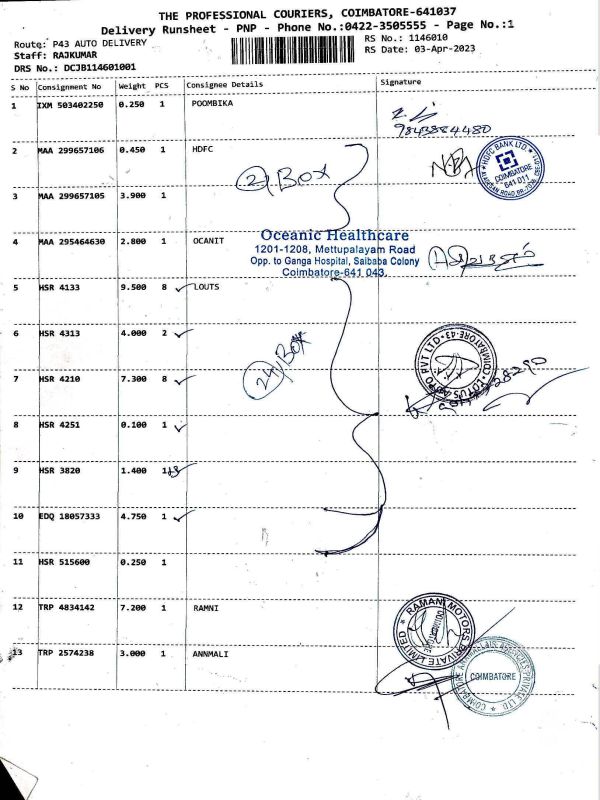 THE PROFESSIONAL COURIERS, COIMBATORE-641037
Delivery Runsheet - PNP - Phone No.:0422-3505555 - Page No.:1
Route: P43 AUTO DELIVERY
RS No.: 1146010
Staff: RAJKUMAR
RS Date: 03-Apr-2023
DRS No.: DCJB114601001
S No Consignment No Weight PCS Consignee Details Signature
1 IXM 503402250 0.250 1 POOMBIKA
9843884480
2 MAA 299657106 0.450 1 HDFC
2 Box
HDFC BANK LTD.
COIMBATORE
641 011
3 MAA 299657105 3.900 1
4 MAA 295464630 2.800 1 OCANIT
Oceanic Healthcare
1201-1208, Mettupalayam Road
Opp. to Ganga Hospital, Saibaba Colony
Coimbatore-641 043.
5 HSR 4133 9.500 8 LOUTS
6 HSR 4313 4.000 2
24 Box
7 HSR 4210 7.300 8
8 HSR 4251 0.100 1
9 HSR 3820 1.400
10 EDQ 18057333 4.750 1
11 HSR 515600 0.250 1
12 TRP 4834142 7.200 1 RAMNI
RAMANI MOTORS PRIVATE LIMITED
13 TRP 2574238 3.000 1 ANNMALI
COIMBATORE